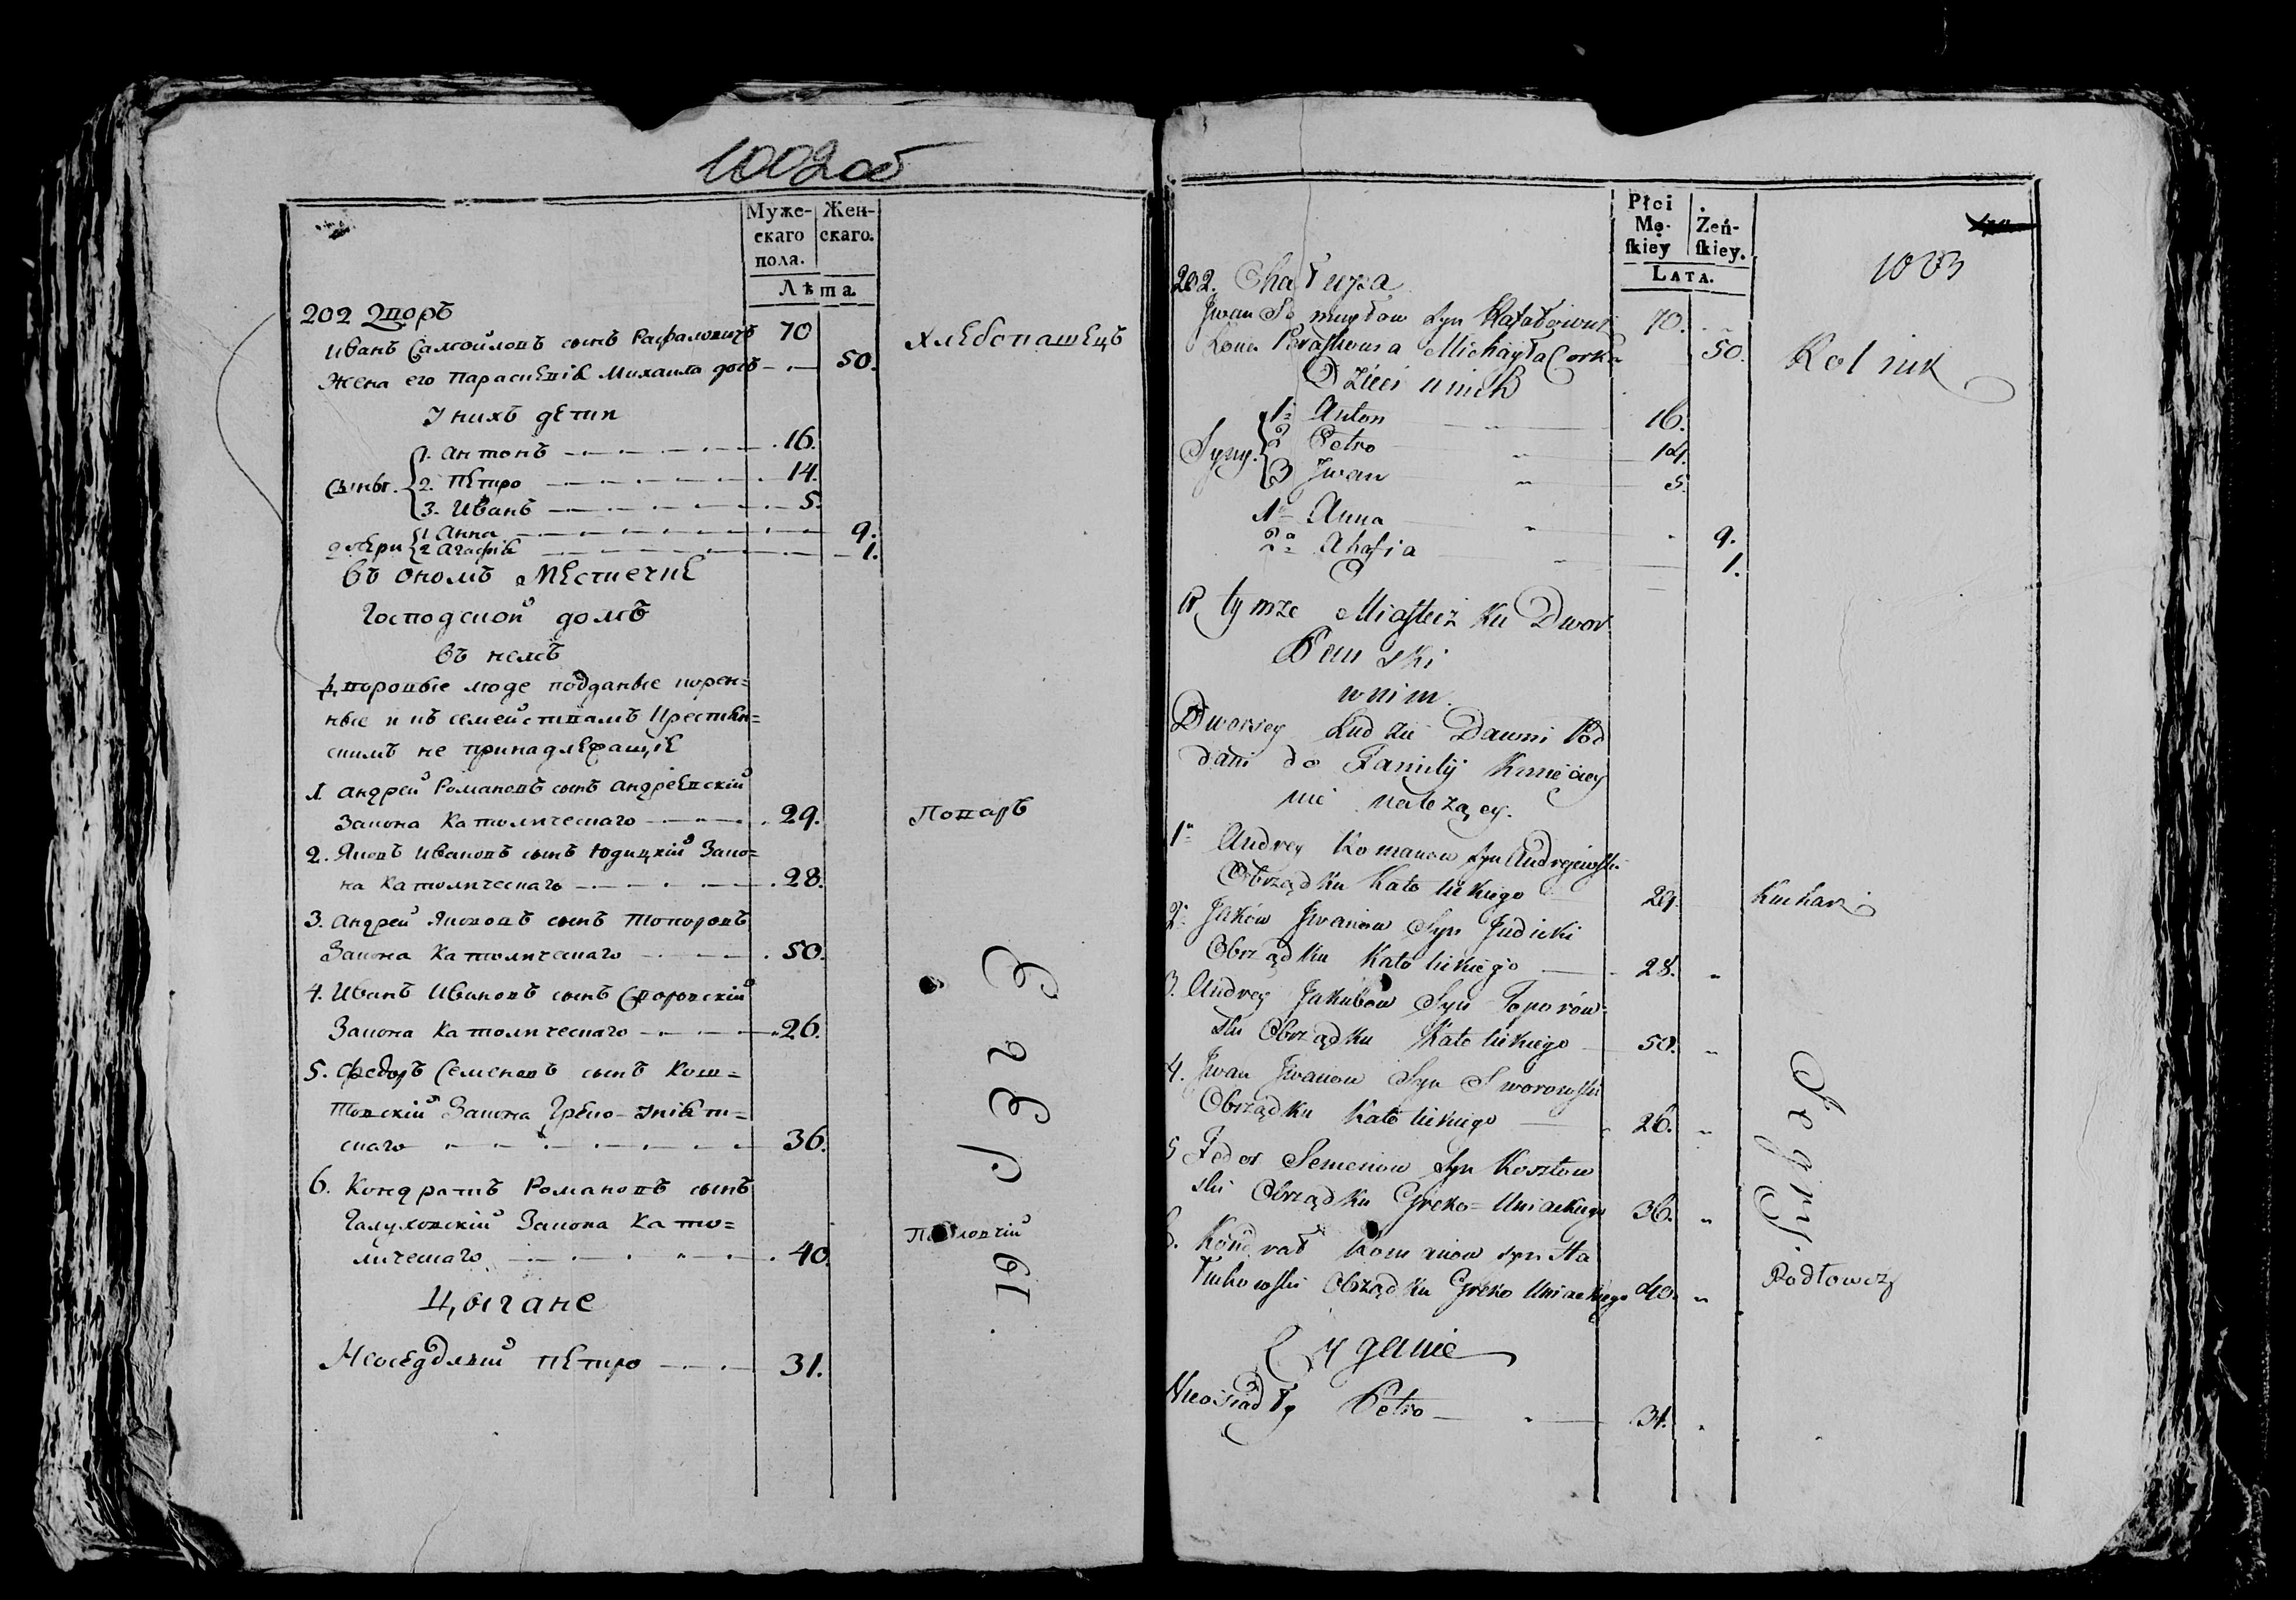 1002 об
Муже-
скаго
пола.
Жен-
скаго.
Лѣта.
202 Дворъ
Иванъ Самойловъ сынъ Рафаловичъ 70 Хлебопашецъ
Жена его Парасковія Михаила дочь 50.
У нихъ дети
Сыны. 1. Антонъ 16.
2. Петро 14.
3. Иванъ 5.
дочери 1 Анна 9.
2 Агафія 1.
въ ономъ местечке
Господской домъ
въ немъ
Дворовые люде подданые корен=
ные и къ семействамъ крестиян=
скимъ не принадлежащіе
1 Андрей Романовъ сынъ Андреевскій
Закона Католическаго 29. Поваръ
2. Яковъ Ивановъ сынъ Юдицкій Зако=
на Католическаго 28.
3. Андрей Якововъ сынъ Топоровъ
Закона Католическаго 50.
4. Иванъ Ивановъ сынъ Своровскій
Закона Католическаго 26.
5. Федоръ Семеновъ сынъ Кош=
товскій Закона Греко-Уніят=
скаго 36.
6. Кондратъ Романовъ сынъ
Галуховскій Закона Като=
лическаго 40.
Цыгане
Неоседлый Петро 31.
1003
Płci
Mę-
ſkiey
Żeń-
ſkiey.
LATA.
202. Chałupa
Jwan Samuyłow Syn Rafałowicz 70. Rolnik
Żona Paraskowia Michayła Corka 50.
Dzieci u nich
Syny. 1. Anton 16.
2 Petro 14.
3 Jwan 5.
1a Anna 9.
2a Ahafia 1.
W tymże Miasteczku Dwor
Panski
w nim.
Dworscy Ludzie Dawni Pod
dani do Familij Kmiecey
nie należący.
1o Andrey Romanow syn Andrejewski
Obrządku Katolickiego 29. Kucharz
2. Jaków Jwanow Syn Judicki
Obrządku Katolickiego 28.
3. Andrey Jakubow Syn Toporów=
ski Obrządku Katolickiego 50.
4. Jwan Jwanow Syn Sworowski
Obrządku Katolickiego 26.
5 Fedor Semenow Syn Kosztow
ski Obrządku Greko=Uniackiego 36.
6. Kondrat Romanow syn Ha
łuhowski Obrządku Greko Uniackiego 40.
Cyganie
Nieosiadły Petro 31.